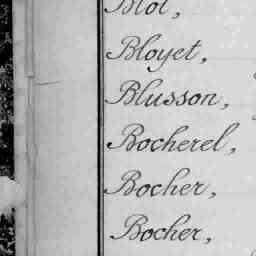 Blot,
Bloyet,
Blusson,
Bocherel,
Bocher,
Bocher,